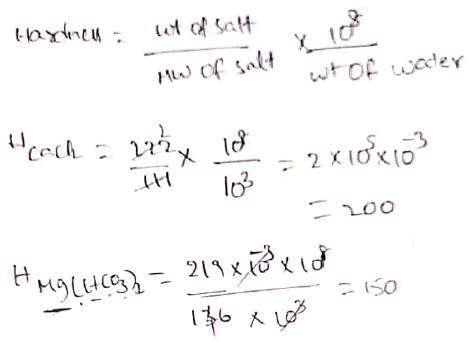 Hardness = wt of salt / MW of salt × 10^8 / wt of water
H CaCl2 = 222 / 111 × 10^8 / 10^3 = 2 × 10^5 × 10^-3
= 200
H Mg(HCO3)2 = 219 × 10^-3 × 10^8 / 146 × 10^3 = 150